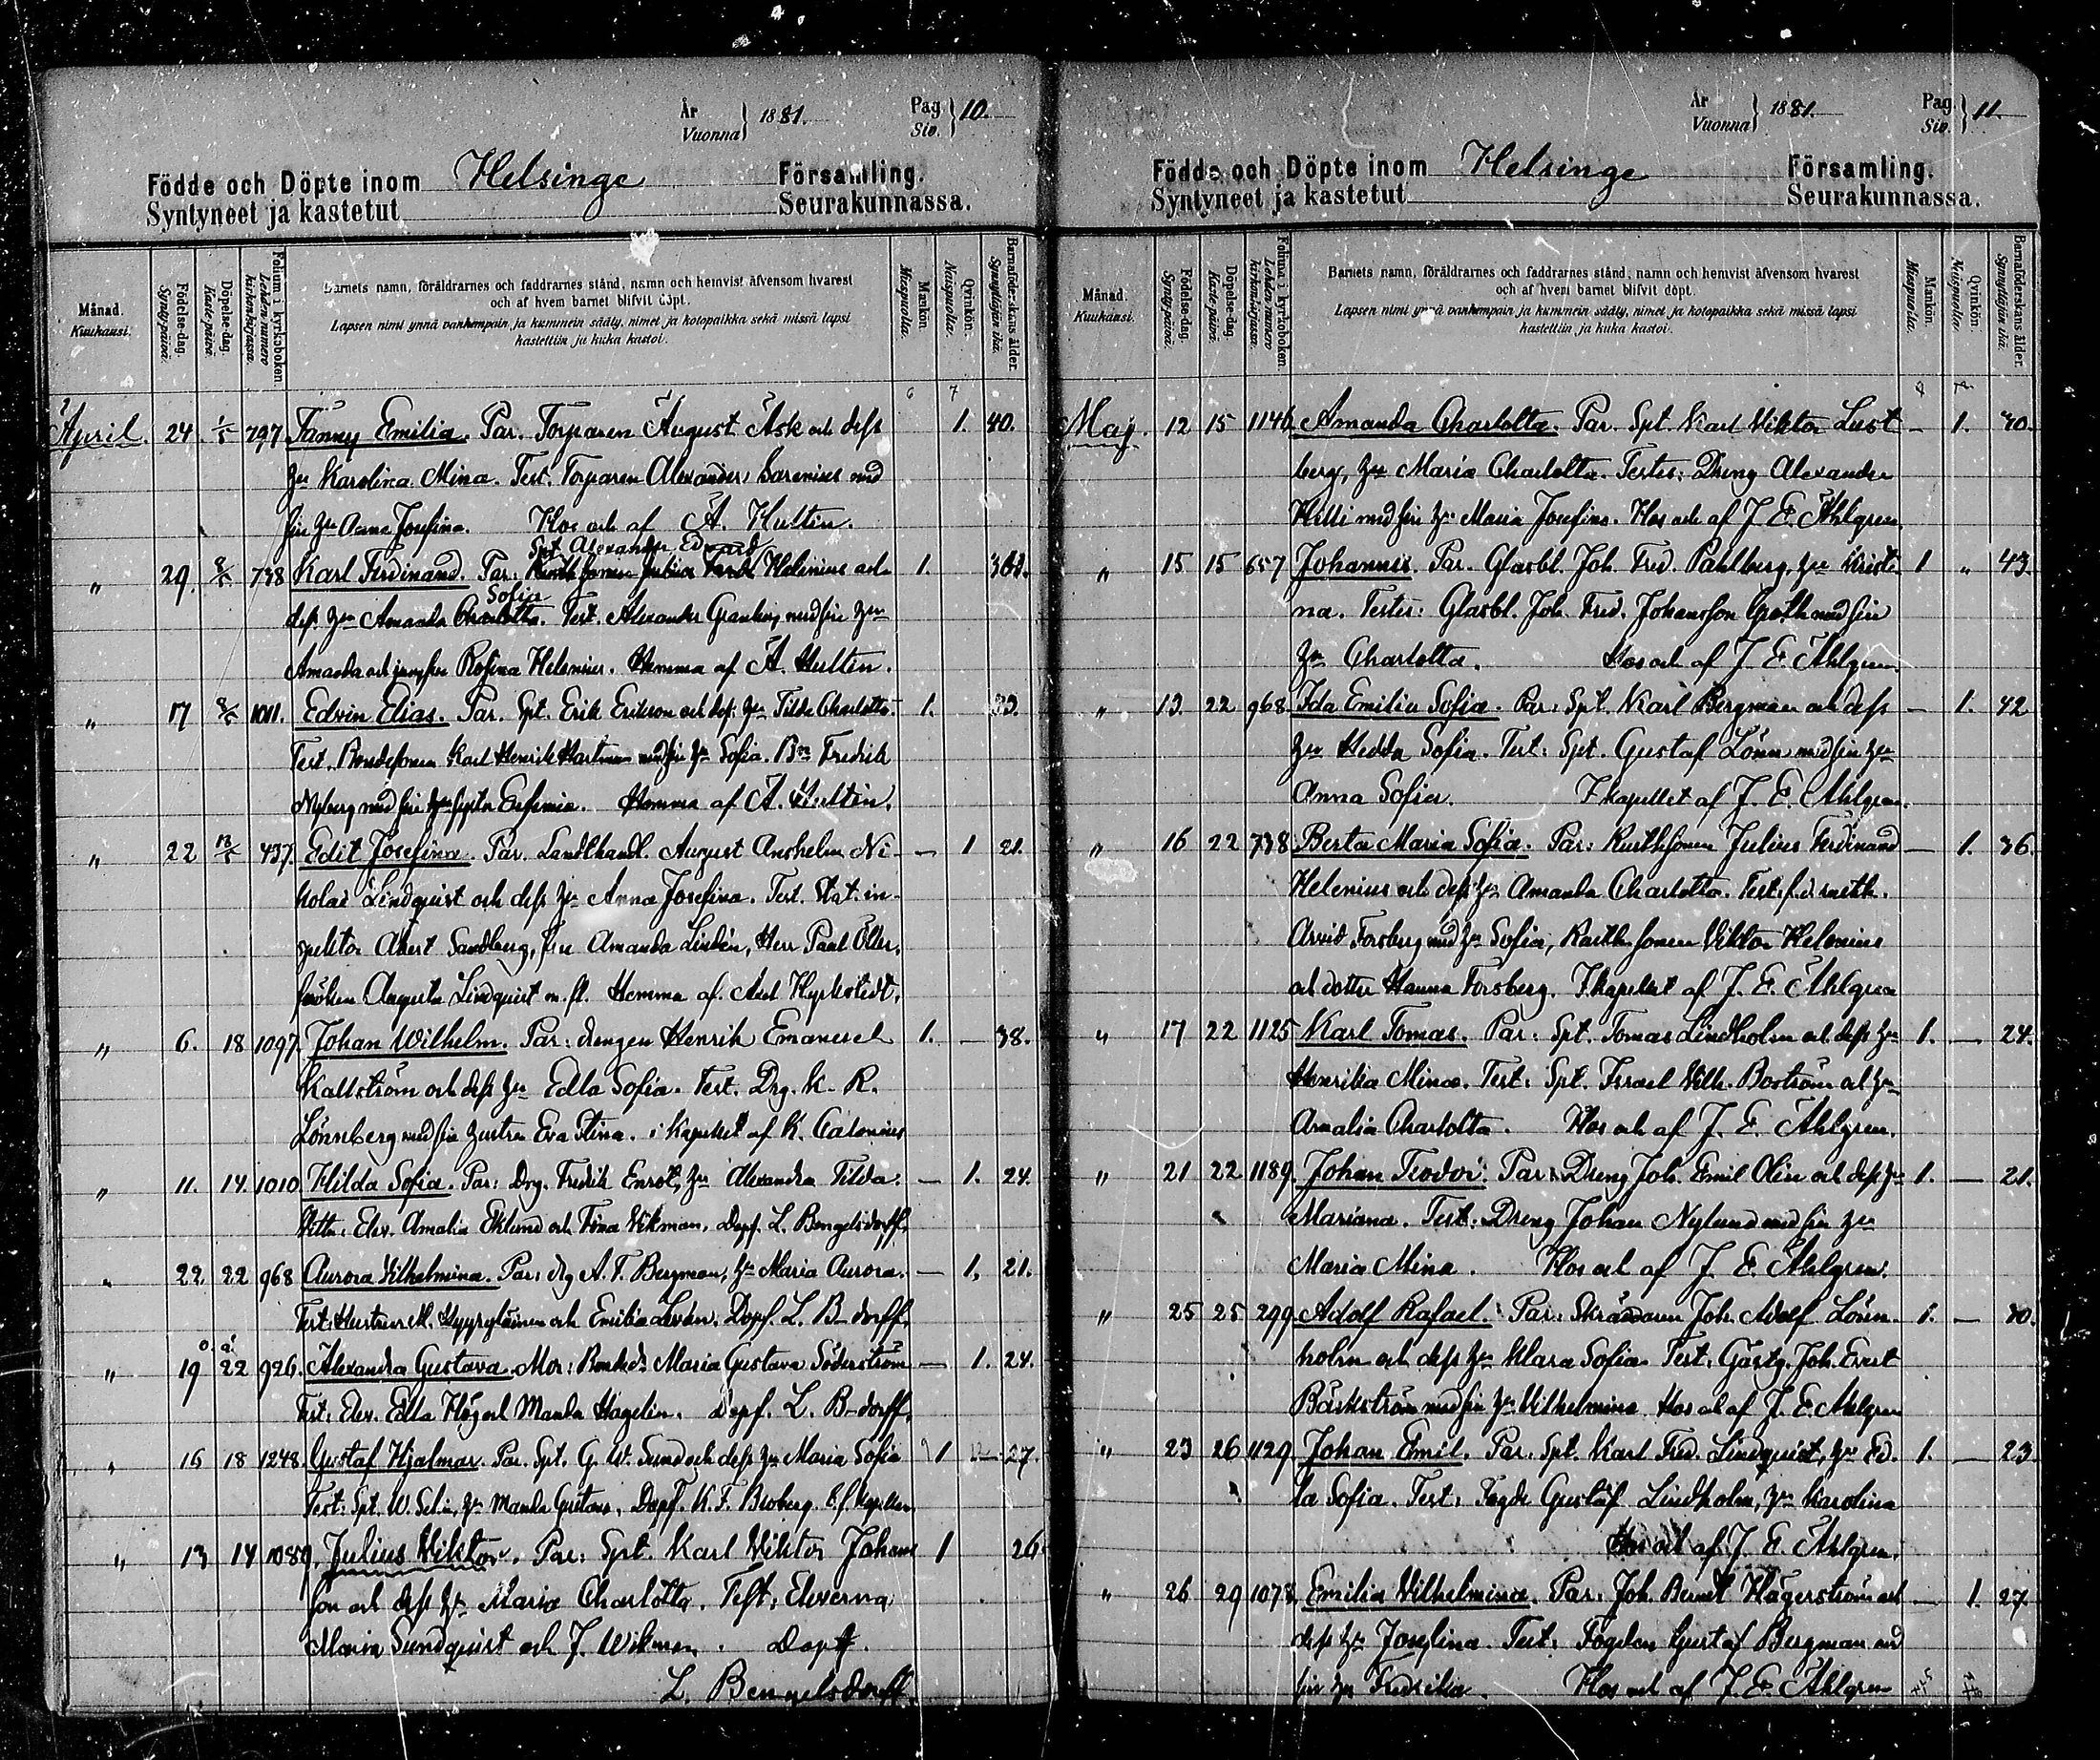 År
Vuonna } 1881. Pag. Siv. } 10.
Födde och Döpte inom Helsinge Församling.
Syntyneet ja kastetut Seurakunnassa.
Månad. Kuukausi.
Födelse-dag. Synty-päivä.
Döpelse-dag. Kaste-päivä.
Folium i kyrkoboken. Lehden numero kirkonkirjassa.
Barnets namn, föräldrarnes och faddrarnes stånd, namn och hemvist äfvensom hvarest
och af hvem barnet blifvit döpt.
Lapsen nimi ynnä vanhempain ja kummein sääty, nimet ja kotopaikka sekä missä lapsi
kastettiin ja kuka kastoi.
Mankön. Miespuolia.
Qvinkön. Naispuolia.
Barnaföderskans ålder. Synnyttäjän ikä.
April. 24 1/5 797 Fanny Emilia. Par. Torparen August Ask och dess 1. 40.
hu Karolina Mina. Test. Torparen Alexander Sarenius med
sin hu Anna Josefina. Hos och af A. Hultin.
Spt Alexander Edvard
" 29. 8/5 738 Karl Ferdinand. Par: Helenius och 1.
Sofia
dess hu Amanda Charlotta. Test. Alexander Granberg med sin hu
Amanda och jungfru Rosina Helenius. Hemma af A. Hultin.
" 17 8/5 1011. Edvin Elias. Par. Spt. Erik Erikson och dess hu Tilda Charlotta. 1. 33.
Test. Bondesonen Karl Henrik Hartman med sin hu Sofia. Fredrik
Nyberg med sin syster Eufemia. Hemma af A. Hultin.
" 22 13/5 437. Edit Josefina. Par. Landthandl. August Anshelm Ni- — 1 21.
kolai Lindquist och dess hu Anna Josefina. Test. Stat. in-
spektor Albert Sandberg, fru Amanda Lindén, Herr Paul Öller,
fröken Augusta Lindquist m. fl. Hemma af Axel Kyrkstedt.
" 6. 18 1097. Johan Wilhelm. Par: drengen Henrik Emanuel 1. — 38.
Kallström och dess hu Edla Sofia. Test. Drg. K. R.
Lönnberg med sin hustru Eva Stina. i Kapellet af K. Calonius
" 11. 14. 1010 Hilda Sofia. Par: Drg. Fredrik Enrot, hu Alexandra Tilda. — 1. 24.
Elev. Amalia Eklund och Fina Wikman. Döpf. L. Bengelsdorff.
" 22. 22 968 Aurora Vilhelmina. Par: drg A. F. Bergman, hu Maria Aurora. — 1. 21.
Test: Hustrur M. Hyyryläinen och Emilia Levón. Döpf. L. B-dorff.
" 19 22 926. Alexandra Gustava. Mor: Maria Gustava Söderström — 1. 24.
Test: Elev. Edla Hög och Manda Hagelin. Döpf. L. B-dorff.
" 16 18 1248. Gustaf Hjalmar. Par. Spt. G. W. Sund och dess hu Maria Sofia 1 27.
Test: Spt. W. Selin, hu Manda Gustava. Döpf. K. F. Broberg.
" 13 14 1089. Julius Viktor. Par: Spt. Karl Viktor Johans 1 26.
son och dess hu Maria Charlotta. Test: Eleverna
Maria Sundquist och J. Wikman. Döpf.
L. Bengelsdorff.
År
Vuonna } 1881. Pag. Siv. } 11.
Födde och Döpte inom Helsinge Församling.
Syntyneet ja kastetut Seurakunnassa.
Månad. Kuukausi.
Födelse-dag. Synty-päivä.
Döpelse-dag. Kaste-päivä.
Folium i kyrkoboken. Lehden numero kirkonkirjassa.
Barnets namn, föräldrarnes och faddrarnes stånd, namn och hemvist äfvensom hvarest
och af hvem barnet blifvit döpt.
Lapsen nimi ynnä vanhempain ja kummein sääty, nimet ja kotopaikka sekä missä lapsi
kastettiin ja kuka kastoi.
Mankön. Miespuolia.
Qvinkön. Naispuolia.
Barnaföderskans ålder. Synnyttäjän ikä.
Maj. 12 15 1146 Amanda Charlotta. Par. Spt. Karl Viktor Lust- — 1. 30.
berg, hu Maria Charlotta. Testes: Dreng Alexander
med sin hu Maria Josefina. Hos och af J. E. Ahlgren.
" 15 15 657 Johannes. Par. Glasbl. Joh. Fred. Pahlberg, hu Kristi- 1 " 43.
na. Testes: Glasbl. Joh. Fred. Johansson Groth med sin
hu Charlotta. Hos och af J. E. Ahlgren.
" 13. 22 968 Ida Emilia Sofia. Par: Spt. Karl Bergman och dess — 1. 42
hu Hedda Sofia. Test: Spt. Gustaf Lönn med sin hu
Anna Sofia. I kapellet af J. E. Ahlgren.
" 16 22 738 Berta Maria Sofia. Par: Rusth.sonen Julius Ferdinand — 1. 36.
Helenius och dess hu Amanda Charlotta. Test: f.d. rusth.
Arvid Forsberg med hu Sofia, Rusth.sonen Viktor Helenius
och dotter Hanna Forsberg. I kapellet af J. E. Ahlgren
" 17 22 1125 Karl Tomas. Par: Spt. Tomas Lindholm och dess hu 1. — 24.
Henrika Mina. Test: Spt. Israel Vilh. Boström och hu
Amalia Charlotta. Hos och af J. E. Ahlgren.
" 21 22 1189. Johan Teodor. Par: Dreng Joh. Emil Olin och dess hu 1. — 21.
Mariana. Test: Dreng Johan Nylund med sin hu
Maria Mina. Hos och af J. E. Ahlgren.
" 25 25 299 Adolf Rafael. Par: Skräddaren Joh. Adolf Lönn- 1. — 30.
holm och dess hu Klara Sofia. Test: Gästg. Joh. Evert
Bäckström med sin hu Vilhelmina. Hos och af J. E. Ahlgren
" 23 26 1129. Johan Emil. Par: Spt. Karl Fred. Lindquist, hu Ed- 1. — 23.
la Sofia. Test: Fogde Gustaf Lindholm, hu Karolina
Hos och af J. E. Ahlgren.
" 26 29 1078. Emilia Vilhelmina. Par: Joh. Bernt Hägerström och — 1. 27.
dess hu Josefina. Test: Fogden Gustaf Bergman med
sin hu Fredrika. Hos och af J. E. Ahlgren